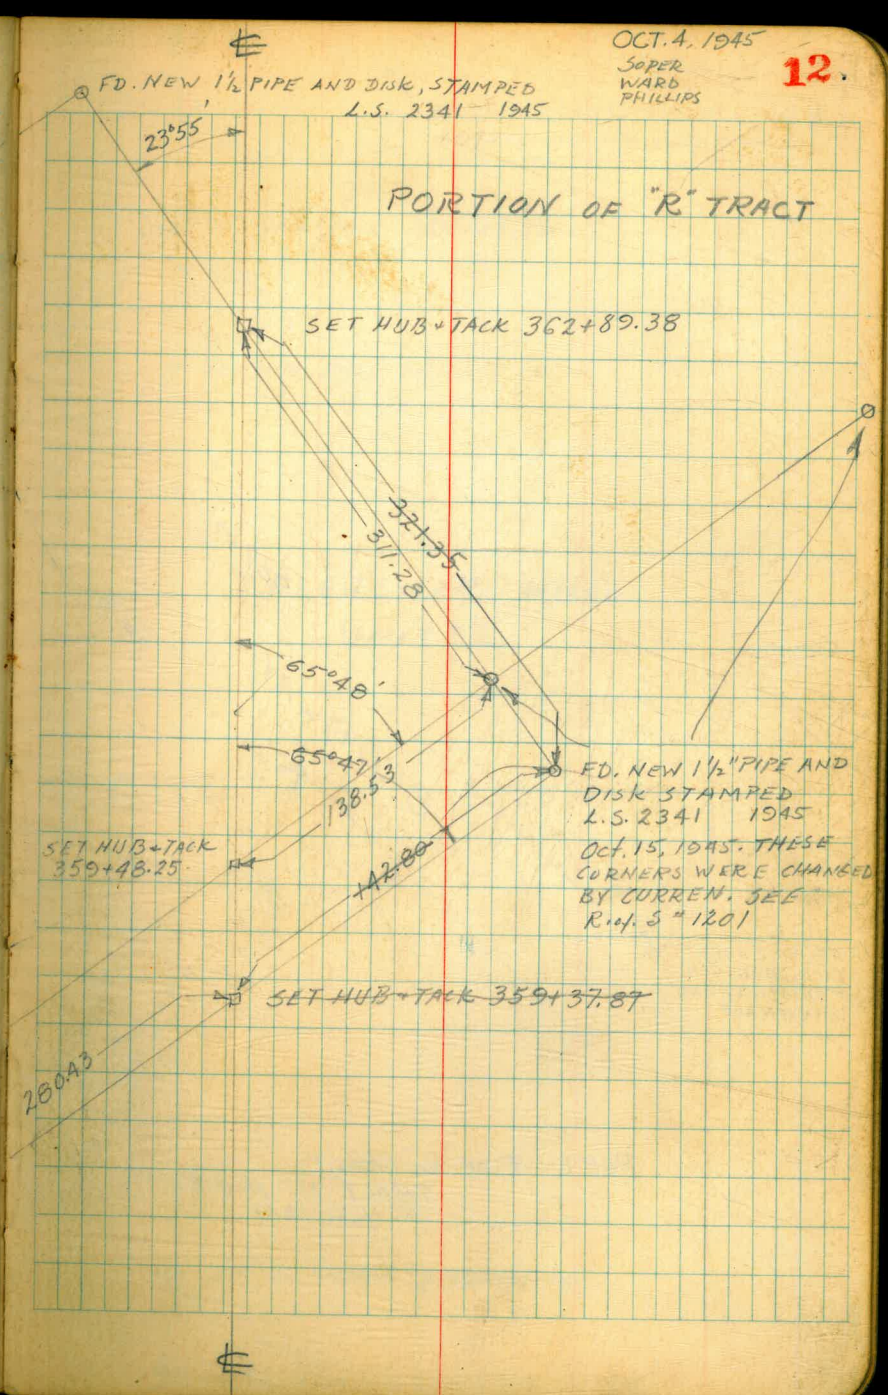 ℄
OCT. 4, 1945
SOPER
WARD
PHILLIPS
12.
FD. NEW 1½ PIPE AND DISK, STAMPED
L.S. 2341 1945
23°55'
PORTION OF "R" TRACT
SET HUB + TACK 362+89.38
321.35
311.28
65°48'
65°47'
138.53
FD. NEW 1½" PIPE AND
DISK STAMPED
L.S. 2341 1945
Oct. 15, 1945. THESE
CORNERS WERE CHANGED
BY CURREN. SEE
R. of. S # 1201
SET HUB + TACK
359+48.25
142.80
SET HUB + TACK 359+37.87
280.43
℄